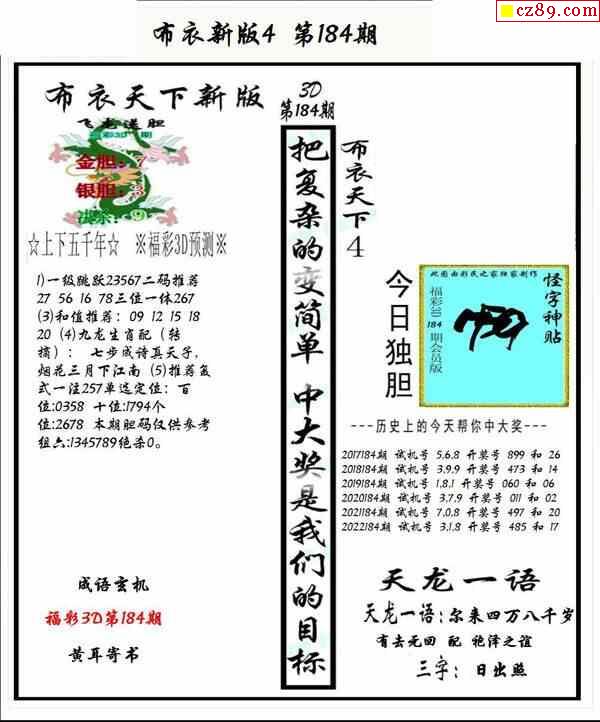 cz89.com
布衣新版4 第184期
布衣天下新版
飞龙送胆
金胆：7
银胆：3
决杀：9
☆上下五千年☆ ※福彩3D预测※
1)一级跳跃23567二码推荐
27 56 16 78三位一体267
(3)和值推荐：09 12 15 18
20 (4)九龙生肖配（转
摘）： 七步成诗真天子，
烟花三月下江南 (5)推荐复
式一注257单选定位：百
位:0358 十位:1794个
位:2678 本期胆码仅供参考
组六:1345789绝杀0。
成语玄机
福彩3D第184期
黄耳寄书
3D
第184期
把复杂的变简单 中大奖是我们的目标
布衣天下4
今日独胆
此图由彩民之家独家制作
怪字神贴
福彩3D 184 期会员版
---历史上的今天帮你中大奖---
2017184期 试机号 5.6.8 开奖号 899 和 26
2018184期 试机号 3.9.9 开奖号 473 和 14
2019184期 试机号 1.8.1 开奖号 060 和 06
2020184期 试机号 3.7.9 开奖号 011 和 02
2021184期 试机号 7.0.8 开奖号 497 和 20
2022184期 试机号 3.1.8 开奖号 485 和 17
天龙一语
天龙一语：尔来四万八千岁
有去无回 配 袍泽之谊
三字： 日出照